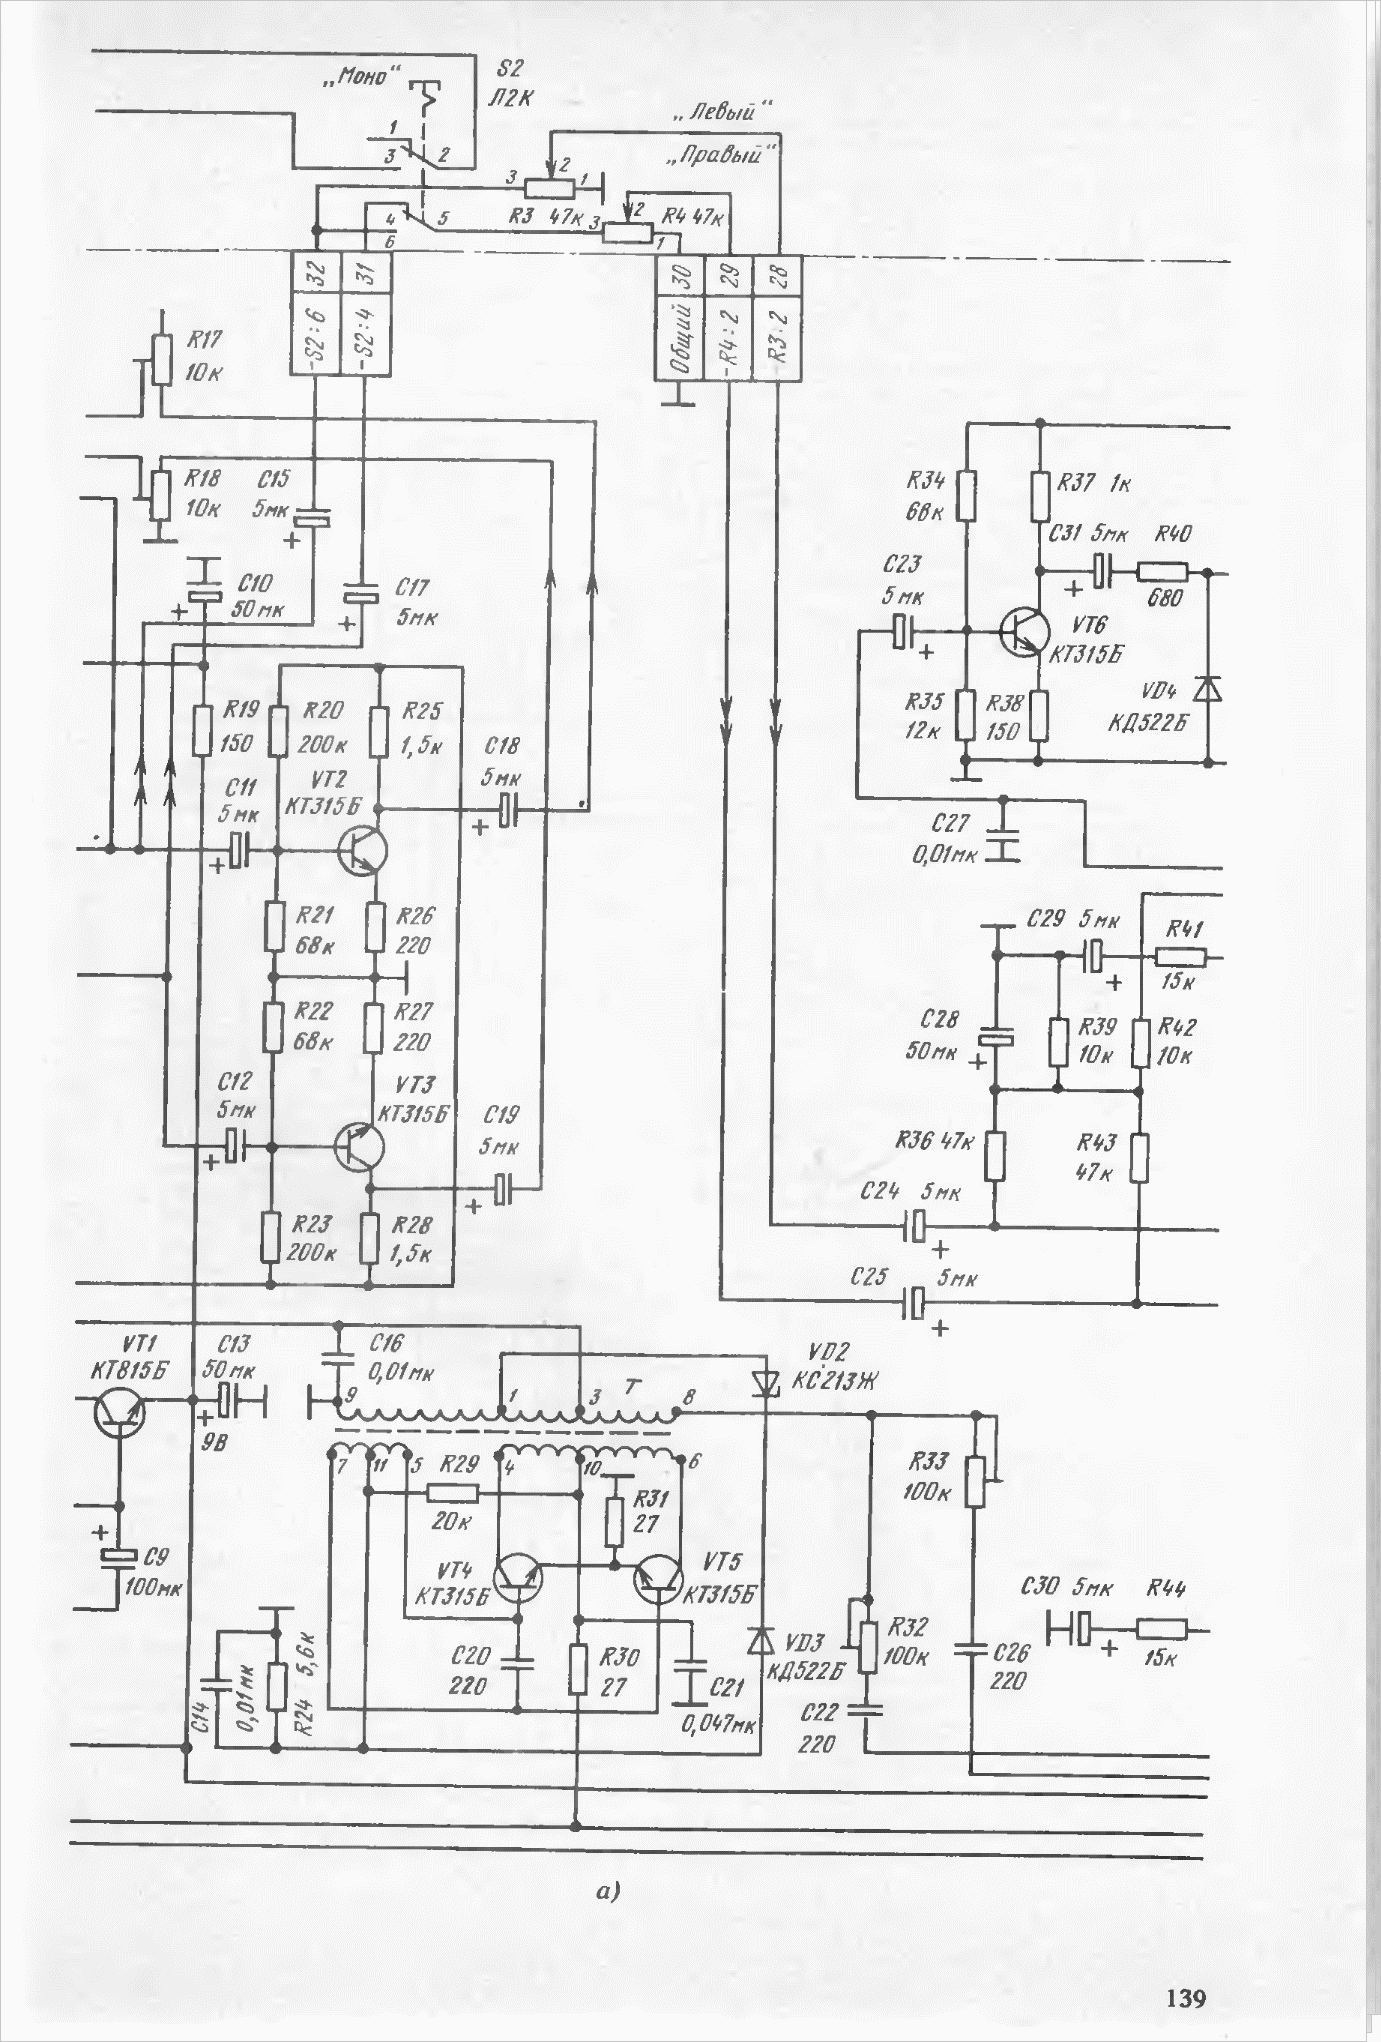 „Моно“
S2
П2К
„Левый“
„Правый“
1
3
2
3
2
1
R3 47к
3
2
R4 47к
1
4
5
6
32
31
-S2:6
-S2:4
30
29
28
Общий
-R4:2
-R3:2
R17
10к
R18
10к
C15
5мк
+
C10
50мк
+
C17
5мк
+
R34
68к
R37 1к
C31 5мк
+
R40
680
C23
5мк
+
VT6
КТ315Б
R35
12к
R38
150
VD4
КД522Б
R19
150
R20
200к
R25
1,5к
C18
5мк
+
VT2
КТ315Б
C11
5мк
+
C27
0,01мк
R21
68к
R26
220
C29 5мк
+
R41
15к
R22
68к
R27
220
C28
50мк
+
R39
10к
R42
10к
C12
5мк
+
VT3
КТ315Б
C19
5мк
+
R36 47к
R43
47к
C24 5мк
+
R23
200к
R28
1,5к
C25 5мк
+
VT1
КТ815Б
C13
50мк
+
9В
C16
0,01мк
9
1
3
T
8
VD2
КС213Ж
7
11
5
4
10
6
R29
20к
R31
27
R33
100к
+
C9
100мк
VT4
КТ315Б
VT5
КТ315Б
C30 5мк
+
R44
15к
C14
0,01мк
R24 5,6к
C20
220
R30
27
C21
0,047мк
VD3
КД522Б
R32
100к
C22
220
C26
220
а)
139